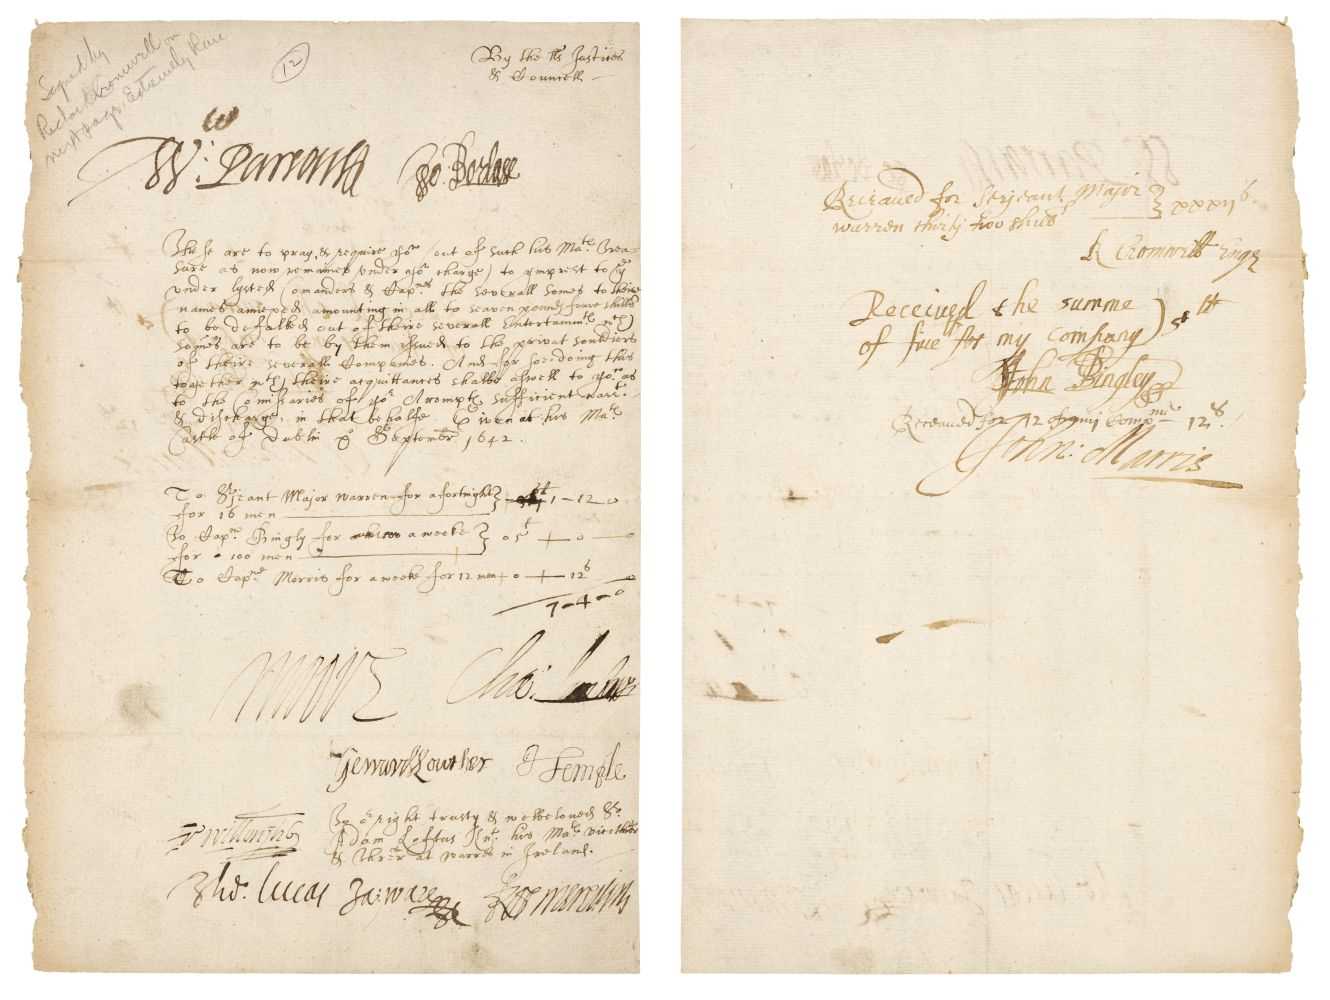 Signed by
Richard Cromwell on
next page. Extremely Rare
12
By the Ls Justices
& Councell
Wi: Parsons
Jo: Borlase
These are to pray & require yor (out of such his Mats Trea-
sure as now remaines under yor charge) to imprest to ye
under listed Comanders & Capnes the severall somes to theire
names anexed amounting in all to seaven pounds foure shills
to be defalked out of theire severall Entertainmts wch
somes are to be by them issued to the private souldiers
of theire severall Companies. And for soe doing this
together wth theire acquittances shalbe aswell to yor as
to the Comissaries of yor Accompts sufficient warrt
& discharge in that behalfe. Given at his Mats
Castle of Dublin Septembr 1642.
To Serjeant Major Warren for a fortnight } 1 - 12 - 0
for 16 men
To Capne Bingly for a weeke } 05 - 0 - 0
for 100 men
To Capne Morris for a weeke for 12 men 0 - 12s - 0
7 - 4 - 0
Moore
Cha:
Gerrard Lowther
J Temple
To or right trusty & welbeloved Sr
Adam Loftus Knt his Mats vice
& Threr at Warres in Ireland.
Tho: Lucas
Ja: Ware
Rob: Meredith
Receaued for Serjeant Major } xxxijs.
warren thirty two shils
R Cromwell
Received the summe ) 5 li
of five for my company
John Bingley
Receaued for 12 Comp 12s.
John: Morris